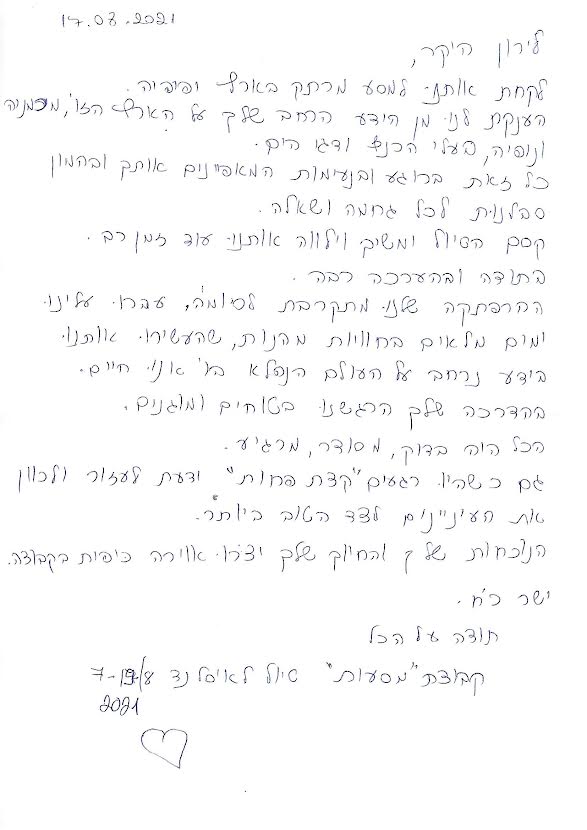 17.08.2021
לירון היקר,
לקחת אותנו למסע מרתק בארץ ופיפיה.
הענקת לנו מן הידע הרחב שלך על הארץ הזו, מכמניה
ונופיה, בעלי הכנף ודגי הים.
כל זאת ברוגע ובנעימות המאפיינים אותך ובהמון
סבלנות לכל גחמה ושאלה.
קסם הטיול ומשיך וילווה אותנו עוד זמן רב.
בתודה ובהערכה רבה.
ההרפתקה שלנו מתקרבת לסיומה, עברו עלינו
ימים מלאים בחוויות מהנות, שהעשירו אותנו
בידע נרחב על העולם הנפלא בו אנו חיים.
בהדרכה שלך הרגשנו בטוחים ומוגנים.
הכל היה בדוק, מסודר, מרגיע.
גם כשהיו רגעים "קצת פחות" ידעת לעזור ולכוון
את העיניינים לצד הטוב ביותר.
הנוכחות שלך והחיוך שלך יצרו אווירה כיפית בקבוצה.
ישר כ'ח.
תודה על הכל
קבוצת "מסעות" טיול לאיסלנד 7-19/8
2021